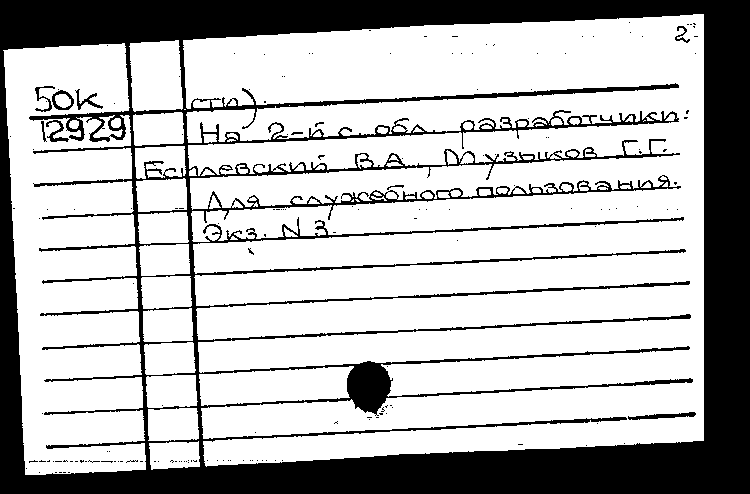 2
50К
сти)
12929
На 2-й с. обл. разработчики:
В.А., Музыков Г.Г.
Для служебного пользования.
Экз. N 3